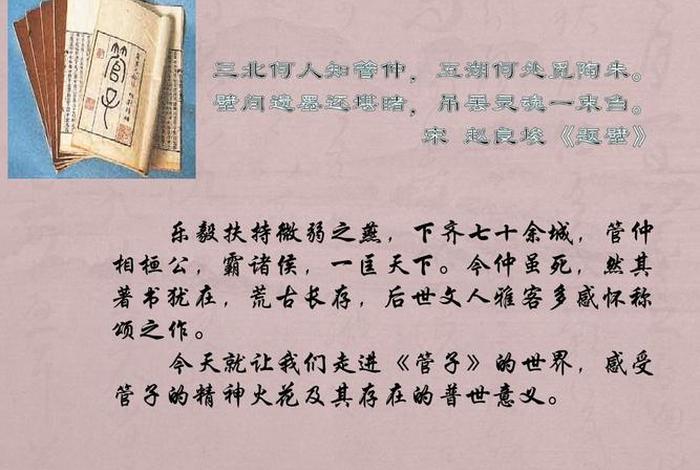 管子
三北何人知管仲，五湖何处觅陶朱。
壁间遗墨还堪睹，吊罢灵魂一束刍。
宋 赵良埈《题壁》
乐毅扶持微弱之燕，下齐七十余城，管仲
相桓公，霸诸侯，一匡天下。今仲虽死，然其
著书犹在，荒古长存，后世文人雅客多感怀称
颂之作。
今天就让我们走进《管子》的世界，感受
管子的精神火花及其存在的普世意义。